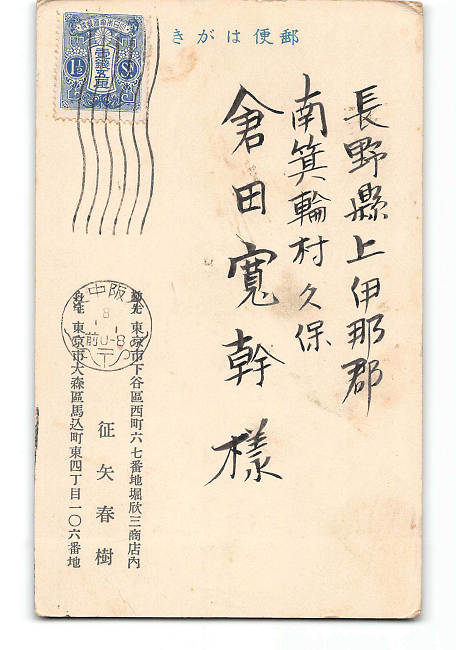 郵便はがき
長野縣上伊那郡
南箕輪村久保
倉田寬幹樣
東京市下谷區西町六七番地堀欣三商店內
東京市大森區馬込町東四丁目一〇六番地
征矢春樹
壹錢五厘
1½
Sn
中阪
8
1
前0-8